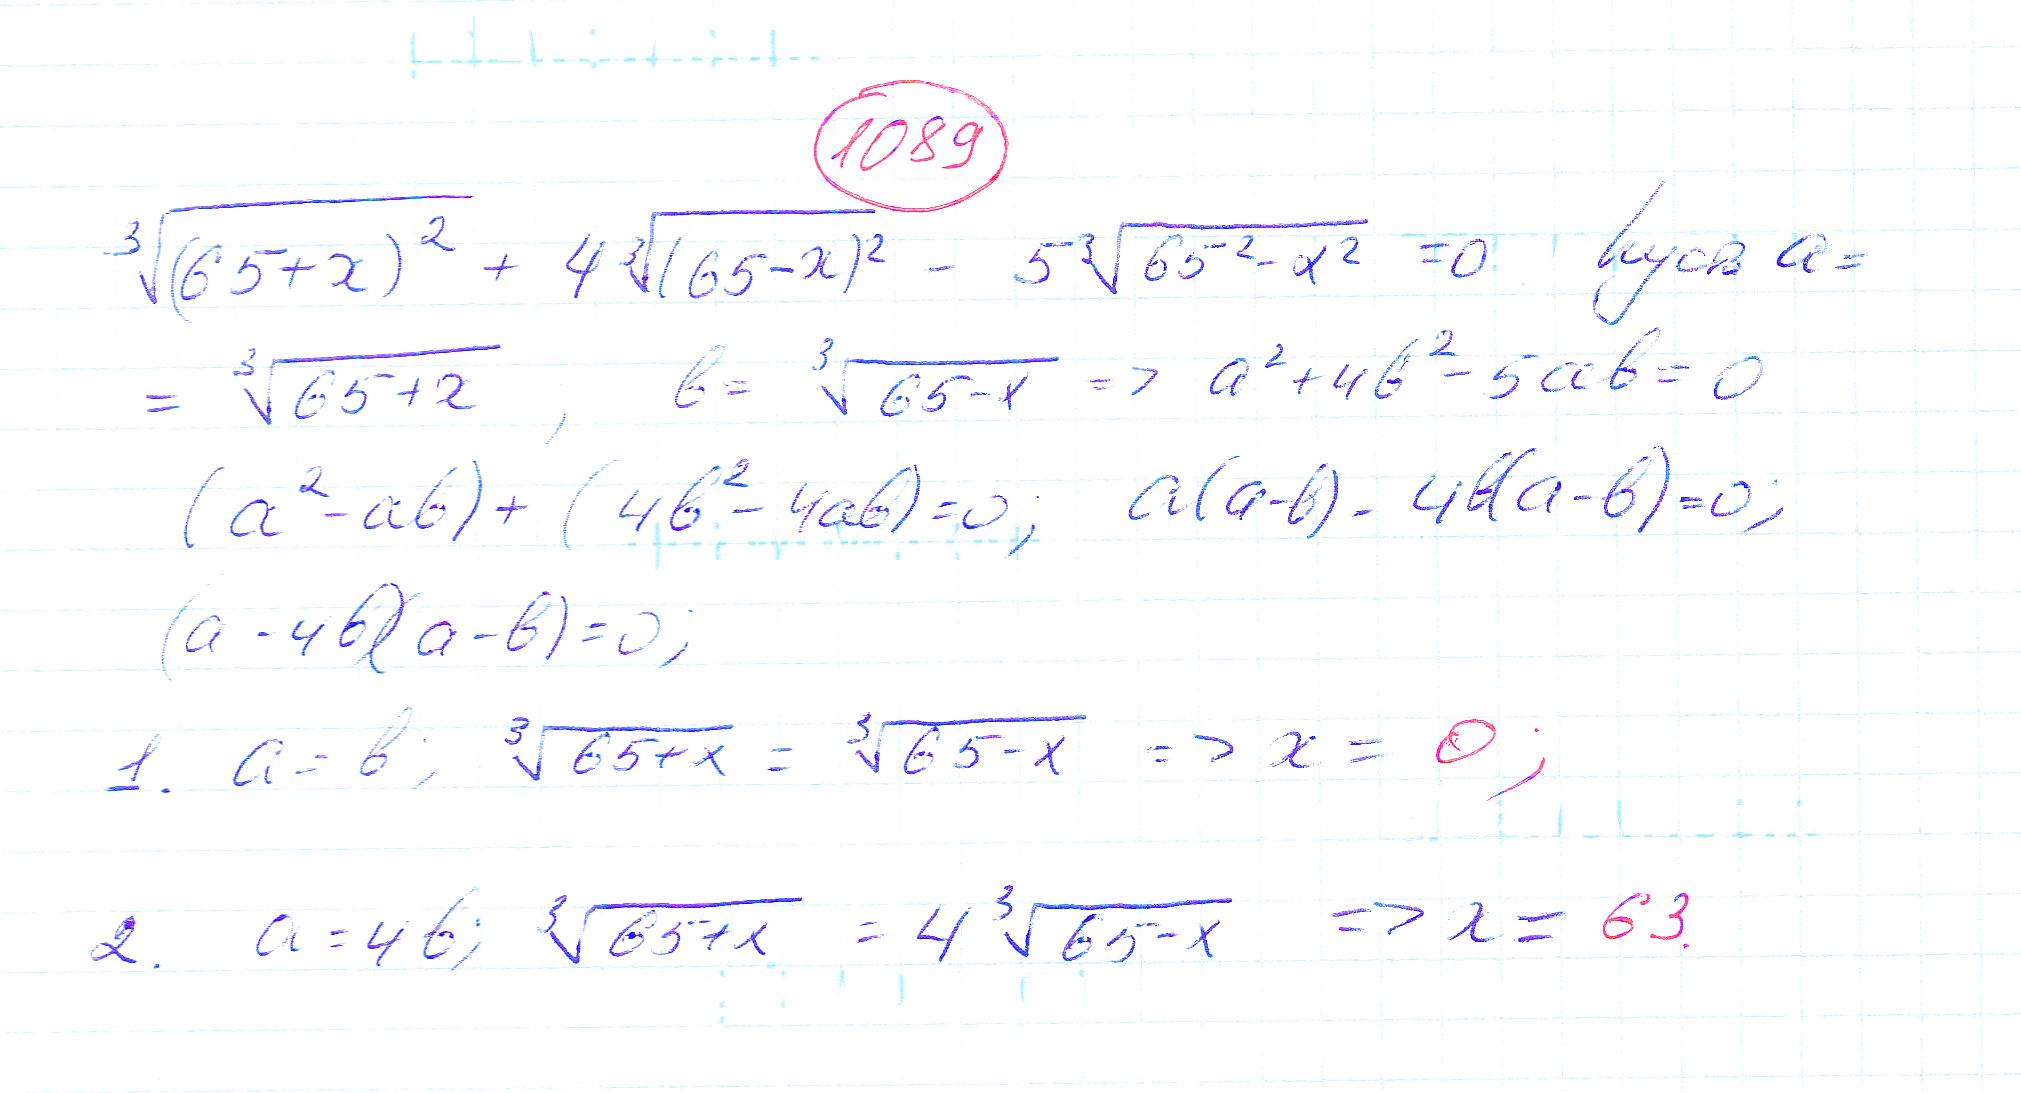 1089
∛(65+x)² + 4∛(65-x)² - 5∛65²-x² = 0 пусть a =
= ∛65+x , b = ∛65-x => a²+4b²-5ab=0
(a²-ab)+(4b²-4ab)=0; a(a-b)-4b(a-b)=0;
(a-4b)(a-b)=0;
1. a=b; ∛65+x = ∛65-x => x = 0;
2. a=4b; ∛65+x = 4∛65-x => x = 63.